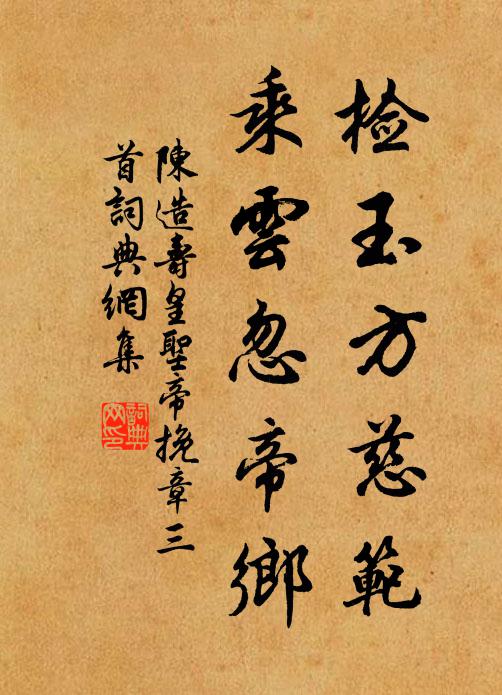 检玉方慈範
乘雲忽帝鄉
陳造壽皇聖帝挽章三
首詞典網集
詞典網印